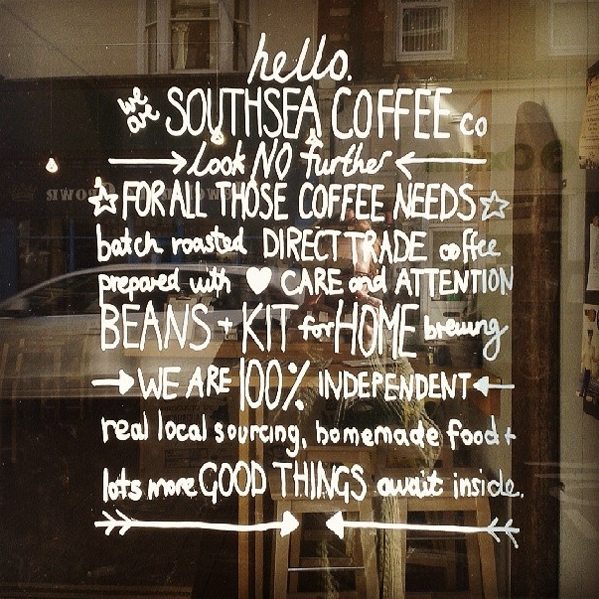 hello.
we are SOUTHSEA COFFEE co
look NO further
FOR ALL THOSE COFFEE NEEDS
batch roasted DIRECT TRADE coffee
prepared with ♥ CARE and ATTENTION
BEANS + KIT for HOME brewing
WE ARE 100% INDEPENDENT
real local sourcing, homemade food +
lots more GOOD THINGS await inside.
CROWN